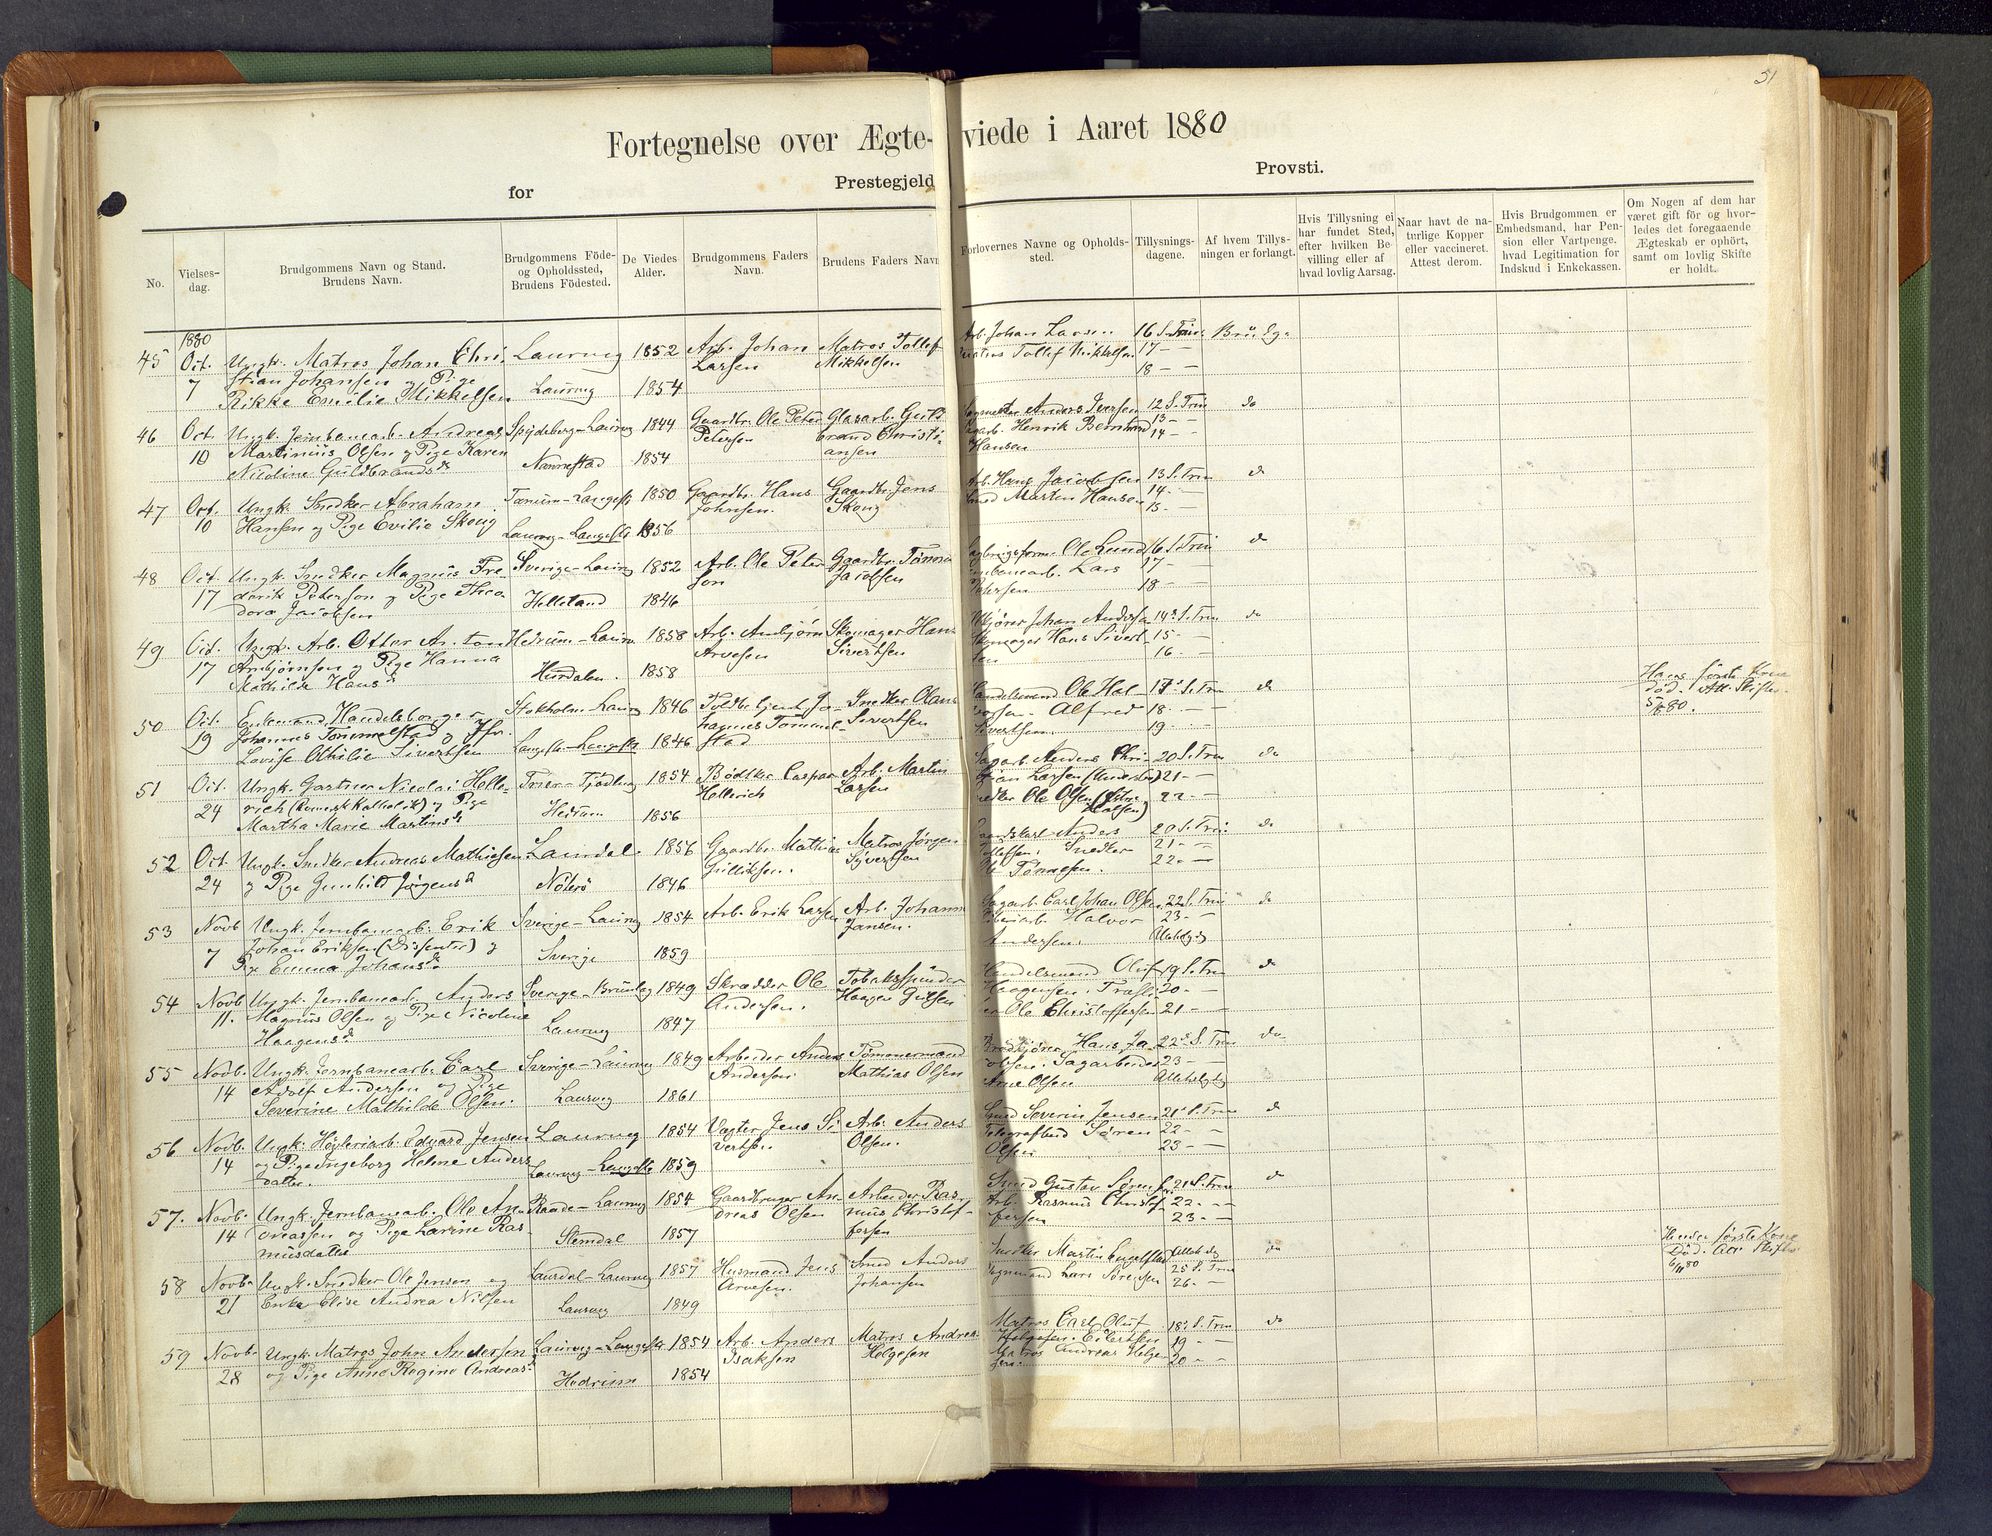 51
Fortegnelse over Ægte-viede i Aaret 1880
for Prestegjeld Provsti.
No.
Vielses-
dag.
Brudgommens Navn og Stand.
Brudens Navn.
Brudgommens Föde-
og Opholdssted,
Brudens Födested.
De Viedes
Alder.
Brudgommens Faders
Navn.
Brudens Faders Navn
Forlovernes Navne og Opholds-
sted.
Tillysnings-
dagene.
Af hvem Tillys-
ningen er forlangt.
Hvis Tillysning ei
har fundet Sted,
efter hvilken Be-
villing eller af
hvad lovlig Aarsag.
Naar havt de na-
turlige Kopper
eller vaccineret.
Attest derom.
Hvis Brudgommen er
Embedsmand, har Pen-
sion eller Vartpenge,
hvad Legitimation for
Indskud i Enkekassen.
Om Nogen af dem har
været gift för og hvor-
ledes det foregaaende
Ægteskab er ophört,
samt om lovlig Skifte
er holdt.
1880
45 Oct. Ungk. Matros Johan Chri Laurvig 1852 Arb. Johan Matros Tollef Arb. Johan Larsen 16 S. Trin
7 stian Johansen og Pige Larsen Mikkelsen Matros Tollef Mikkelsen 17 — —
Rikke Emilie Mikkelsen Laurvig 1854 18 — —
46 Oct. Ungk. Jernbanearb. Andreas Spydeberg-Laurvig 1844 Gaardbr. Ole Peter Glasarb. Guld Anders Iversen 12 S. Trin do
10 Martinius Olsen og Pige Karen Petersen brand Christi Henrik Bernhard 13 — —
Nicoline Guldbrandsd. Nannestad 1854 ansen Hansen 14 —
47 Oct. Ungk. Snedker Abraham Tanum-Langest. 1850 Gaardbr. Hans Gaardbr. Jens Arb. Hans Jacobsen 13 S. Trin do
10 Hansen og Pige Evilie Skoug Johnsen. Skoug Smed Martin Hansen 14 —
Laurvig-Langest. 1856 15 — —
48 Oct. Ungk. Snedker Magnus Fre Sverige-Laurvig 1852 Arb. Ole Peter Gaardbr. Ole Lund 16 S. Trin do
17 derik Peterson og Pige Theo son Jacobsen Lars 17 — —
dora Jacobsen Helleland 1846 18 — —
49 Oct. Ungk. Arb. Ottar Anton Hedrum-Laurv. 1858 Arb. Anbjørn Skomager Hans Johan Andersen 14de S. Trin do
17 Anbjørnsen og Pige Hanna Arvesen Sivertsen Skomager Hans Sivert 15 —
Mathilde Hansd. Hurdalen. 1858 sen 16 — —
50 Oct. Enkemand, Handelsborger Stokholm-Laurvig 1846 Toldbetjent Jo Snedker Olaus Handelsmand Ole Hal 17de S. Trin do Hans første Kone
19 Johannes Tommelstad og Jfr. hannes Tommel- Sivertsen vorsen. Alfred 18 — — død. Att. Skifter
Lovise Othilie Sivertsen Langest-Langest. 1846 stad Sivertsen. 19 — —
51 Oct. Ungk. Gartner Nicolai Helle- Trier-Tjødling 1854 Bødtker Caspar Arb. Martin Sagarb. Anders Chri 20 S. Trin do
24 rich (Romersk Katholik) og Pige Hellerich Larsen stian Larsen 21 — —
Martha Marie Martinsd. Hedrum 1856 Snedker Ole Olsen 22 — —
52 Oct. Ungk. Snedker Andreas Mathiesen Laurdal 1856 Gaardbr. Mathias Matros Jørgen Gaardskarl Anders 20 S. Trin do
24 og Pige Gunhild Jørgensd. Gulliksen. Syvertsen Snedker 21 — —
Nøterø 1846 Ole Tønnesen. 22 — —
53 Novb Ungk. Jernbanearb. Erik Sverige-Laurvig 1854 Arb. Erik Larsen Arb. Johann Sagarb. Carl Johan Olsen 22 S. Trin do
7 Johan Eriksen (Disenter) og Jansen. Halvor 23 — —
Pige Emma Johansd. Sverige 1859 Andersen.
54 Novb Ungk. Jernbanearb. Anders Sverige-Brunlag 1849 Skrædder Ole Tobaksspinder Handelsmand Oluf 19 S. Trin do
11. Magnus Olsen og Pige Nicoline Andersen. Haagen Julsen Haagensen. 20 — —
Haagensd. Laurvig 1847 Ole Christoffersen 21 — —
55 Novb. Ungk. Jernbanearb. Carl Sverige-Laurvig 1849 Arbeider Anders Tømmermand Brødkjører Hans Ja 22de S. Trin do
14 Adolf Andersen og Pige Andersen Mathias Olsen cobsen. Sagarbeider 23 — —
Severine Mathilde Olsen. Laurvig 1861 Arne Olsen
56 Novb. Ungk. Høvleriarb. Edvard Jensen Laurvig 1854 Vagter Jens Si Arb. Anders Smed Severin Jensen 21de S. Trin do
14 og Pige Ingeborg Helene Anders vertsen Olsen. Telegrafbud Søren 22 — —
datter. Laurvig-Langest. 1859 Olsen 23 — —
57. Novb. Ungk. Jernbanearb. Ole An Raade-Laurvig 1854 Gaardbruger An Arbeider Ras Smed Gustav Sørensen 21 S. Trin do
14 dreassen og Pige Larine Ras dreas Olsen mus Christof Arb. Rasmus Christof 22 — —
musdatter Slemdal 1857 fersen fersen 23 — —
58 Novb. Ungk. Snedker Ole Jensen og Laurdal-Laurvig 1857 Husmand Jens Smed Anders Snedker Martin Engelstad do Hendes første Kone
21 Enke Elise Andrea Nilsen Arvesen. Johansen Lars Sørensen 25 S. Trin Død.
Laurvig 1849 26 — —
59 Novb. Ungk. Matros John Andersen Laurvig-Langest. 1854 Arb. Anders Matros Andreas Matros Carl Oluf 18de S. Trin do
28 og Pige Anne Regine Andreasd. Isaksen Helgesen Helgesen. Eilertsen 19 — —
Hedrum 1854 Matros Andreas Helge 20 — —
sen.